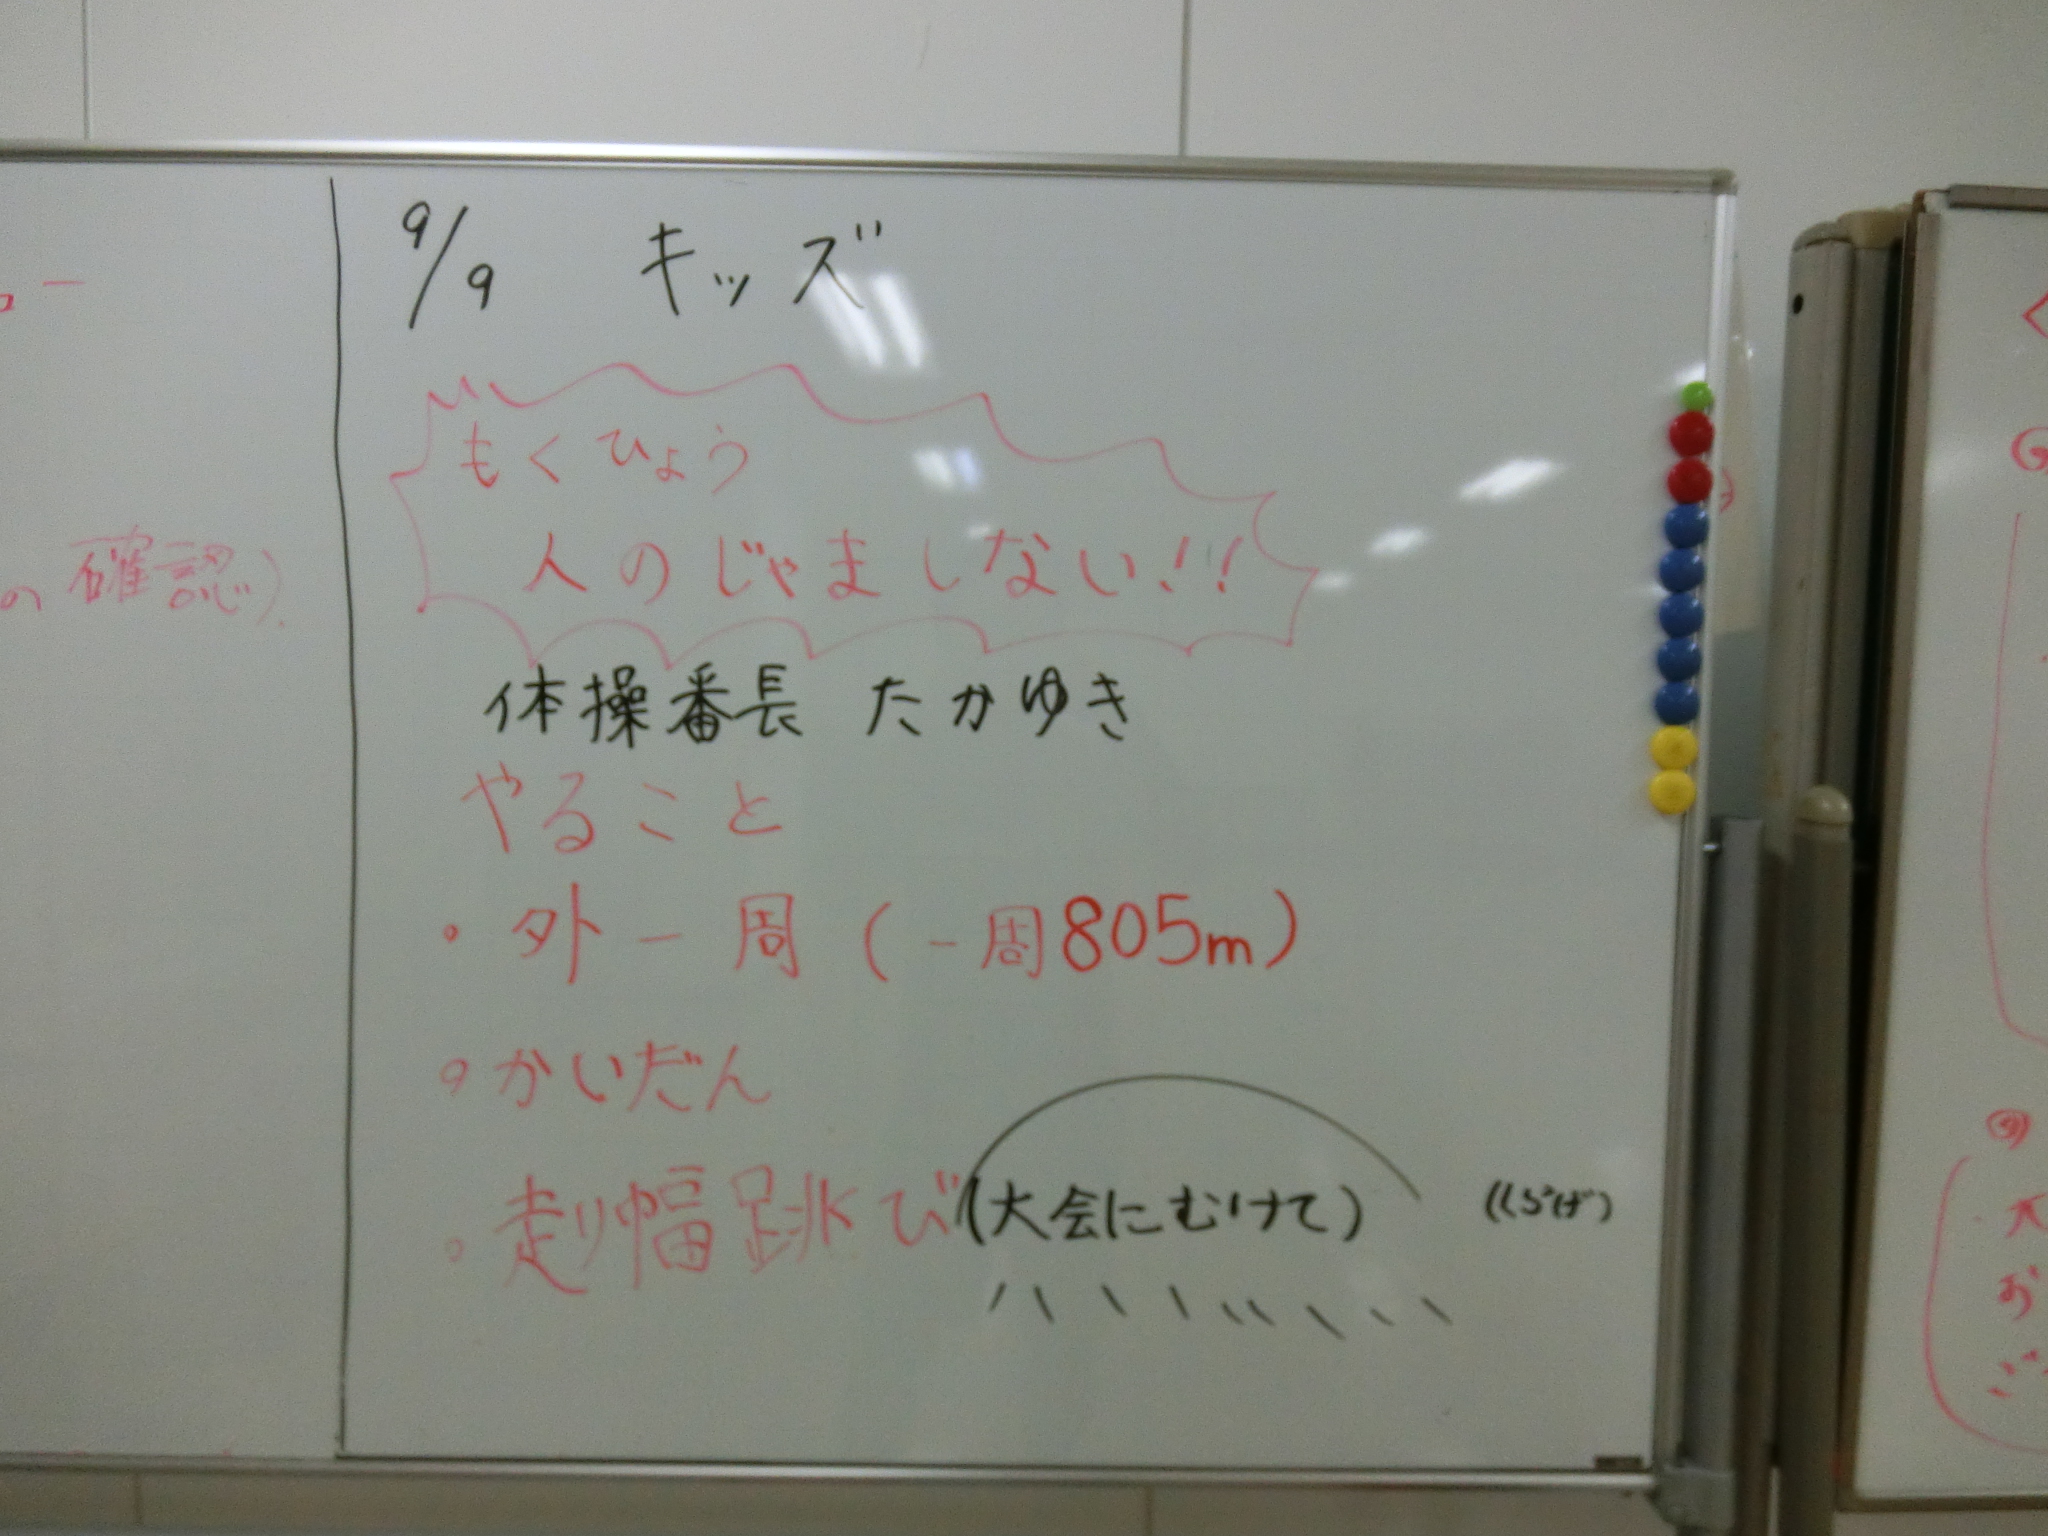 の確認)
9/9 キッズ
もくひょう
人のじゃましない!!
体操番長 たかゆき
やること
・外一周(一周805m)
・かいだん
・走り幅跳び(大会にむけて)
(くらげ)